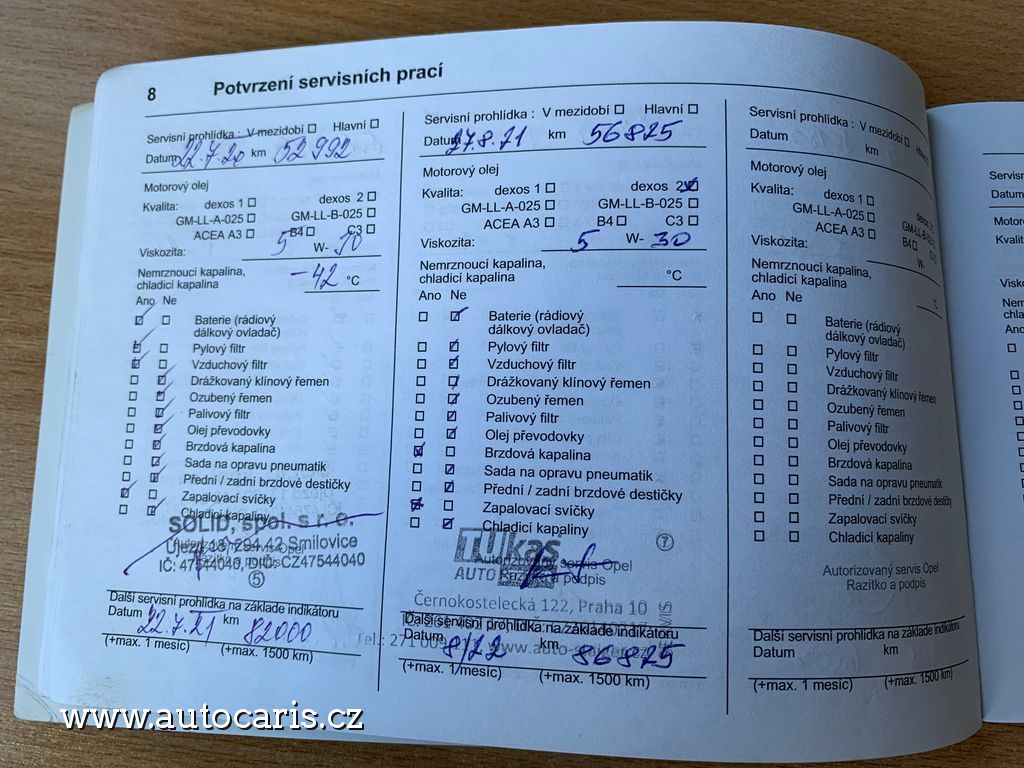 8 Potvrzení servisních prací
Servisní prohlídka : V mezidobí Hlavní
Datum 22.7.20 km 52 992
Motorový olej
Kvalita: dexos 1 dexos 2
GM-LL-A-025 GM-LL-B-025
ACEA A3 B4 C3
Viskozita: 5 W- 30
Nemrznoucí kapalina,
chladicí kapalina -42 °C
Ano Ne
Baterie (rádiový
dálkový ovladač)
Pylový filtr
Vzduchový filtr
Drážkovaný klínový řemen
Ozubený řemen
Palivový filtr
Olej převodovky
Brzdová kapalina
Sada na opravu pneumatik
Přední / zadní brzdové destičky
Zapalovací svíčky
Chladicí kapaliny
SOLID, spol. s r. o.
Újezd 13, 294 42 Smilovice
Autorizovaný servis Opel
Razítko a podpis
IČ: 47544040, DIČ: CZ47544040
5
Další servisní prohlídka na základě indikátoru
Datum 22.7.21 km 82000
(+max. 1 měsíc) (+max. 1500 km)
Servisní prohlídka : V mezidobí Hlavní
Datum 27.8.21 km 56875
Motorový olej
Kvalita: dexos 1 dexos 2
GM-LL-A-025 GM-LL-B-025
ACEA A3 B4 C3
Viskozita: 5 W- 30
Nemrznoucí kapalina,
chladicí kapalina °C
Ano Ne
Baterie (rádiový
dálkový ovladač)
Pylový filtr
Vzduchový filtr
Drážkovaný klínový řemen
Ozubený řemen
Palivový filtr
Olej převodovky
Brzdová kapalina
Sada na opravu pneumatik
Přední / zadní brzdové destičky
Zapalovací svíčky
Chladicí kapaliny
7
TUkas
AUTO
Autorizovaný servis Opel
Razítko a podpis
Černokostelecká 122, Praha 10
Další servisní prohlídka na základě indikátoru
Datum 8/22 km 86875
Tel.: 271 00
(+max. 1 měsíc) (+max. 1500 km)
Servisní prohlídka : V mezidobí Hlavní
Datum km
Motorový olej
Kvalita: dexos 1
GM-LL-A-025 GM-LL-B-025
ACEA A3 B4
Viskozita: W-
Nemrznoucí kapalina,
chladicí kapalina °C
Ano Ne
Baterie (rádiový
dálkový ovladač)
Pylový filtr
Vzduchový filtr
Drážkovaný klínový řemen
Ozubený řemen
Palivový filtr
Olej převodovky
Brzdová kapalina
Sada na opravu pneumatik
Přední / zadní brzdové destičky
Zapalovací svíčky
Chladicí kapaliny
Autorizovaný servis Opel
Razítko a podpis
Další servisní prohlídka na základě indikátoru
Datum km
(+max. 1 měsíc) (+max. 1500 km)
www.autocaris.cz